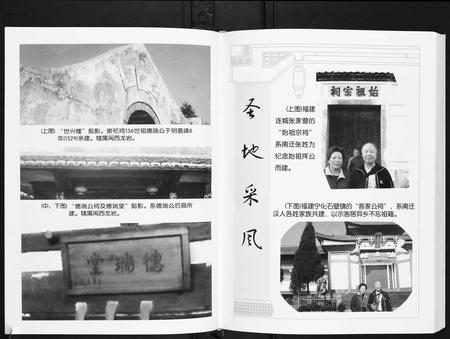 (上图)“世兴楼”剪影。崇祀祠136世祖德瑞公于明嘉靖8
年(1529)亲建。辖属闽西龙岩。
(中、下图)“德瑞公祠及德瑞堂”剪影。系德瑞公后裔所
建。辖属闽西龙岩。
堂瑞德
圣地采风
祠宗祖始
(上图)福建
连城张家营的
“始祖宗祠”
系南迁张姓为
纪念始祖挥公
而建。
(下图)福建宁化石壁镇的“客家公祠”、系南迁
汉人各姓家族共建，以示客居异乡不忘祖籍。